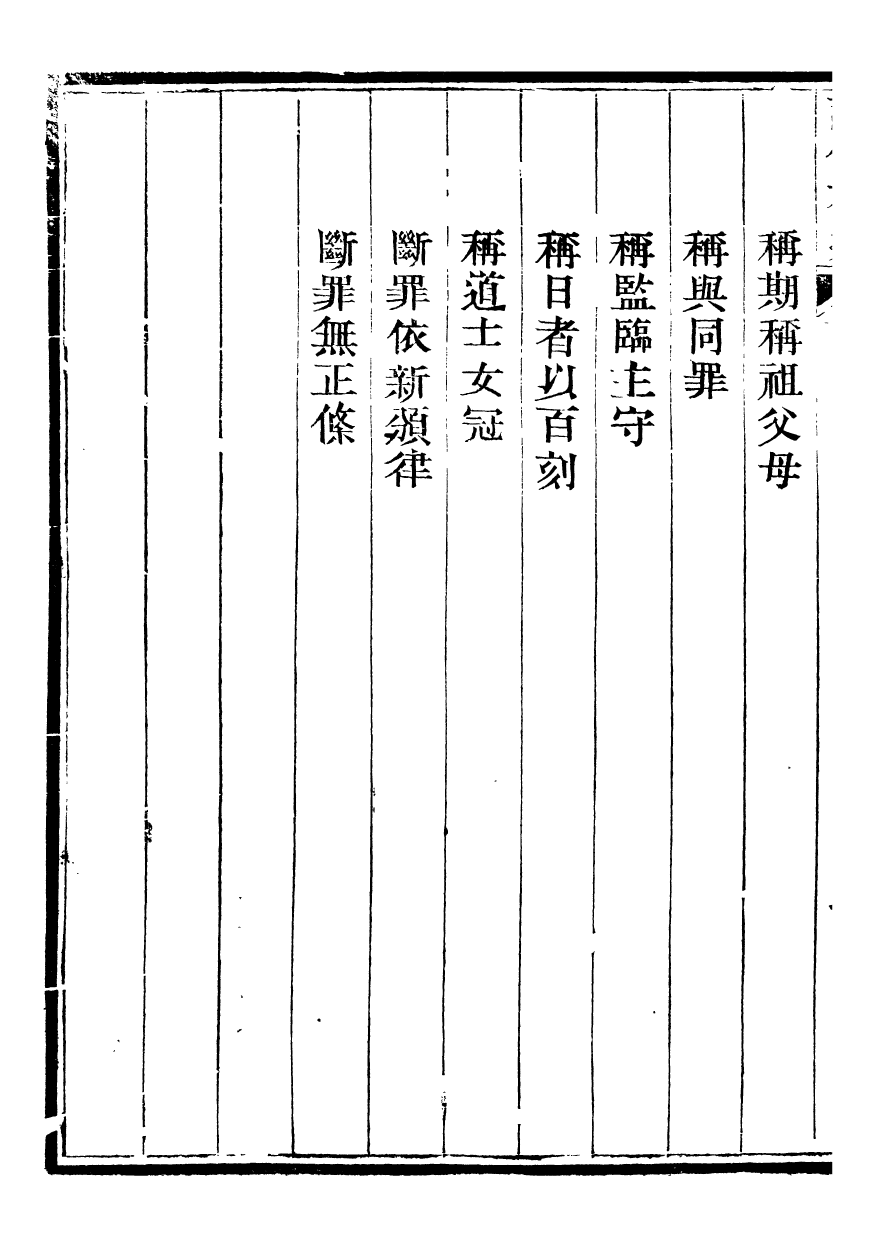 稱期稱祖父母
稱與同罪
稱監臨主守
稱日者以百刻
稱道士女冠
斷罪依新頒律
斷罪無正條